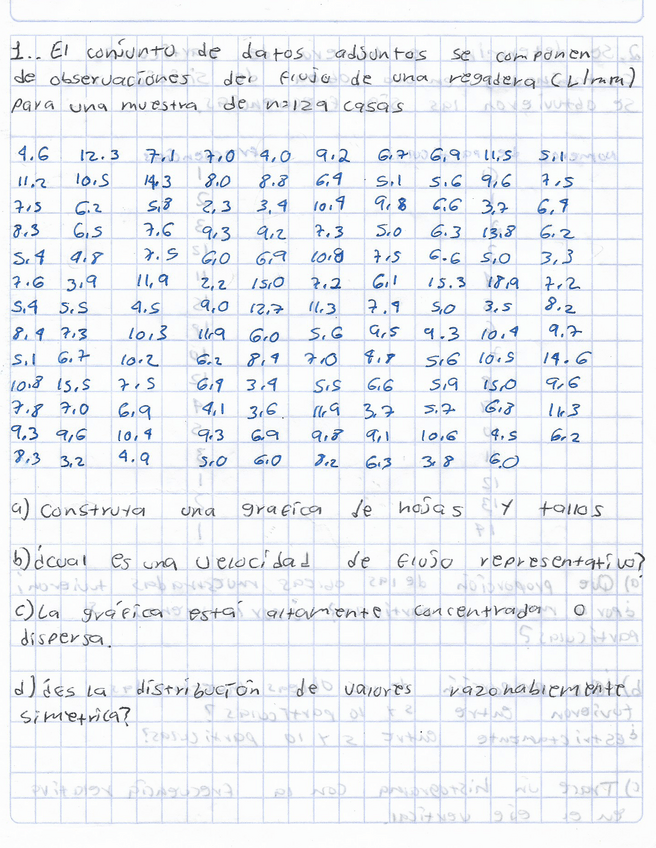 1.. El conjunto de datos adjuntos se componen
de observaciones del flujo de una regadera (L/mm)
para una muestra de n=129 casas
4.6 12.3 7.1 7.0 4.0 9.2 6.7 6.9 11,5 5,1
11,2 10,5 14,3 8,0 8.8 6,4 5,1 5.6 9,6 7,5
7,5 6.2 5,8 2,3 3,4 10,4 9,8 6,6 3,7 6,4
8.3 6,5 7.6 9,3 9,2 7,3 5,0 6.3 13,8 6.2
5,4 4.8 7.5 6,0 6,9 10,8 7,5 6.6 5,0 3,3
7.6 3,9 11,9 2,2 15,0 7,2 6,1 15.3 18,9 7,2
5,4 5,5 4,5 9,0 12,7 11,3 7,4 5,0 3,5 8.2
8,4 7,3 10,3 11,9 6,0 5,6 9,5 9.3 10,4 9,7
5,1 6,7 10,2 6,2 8,4 7,0 4,8 5,6 10,5 14.6
10,8 15,5 7,5 6,4 3,4 5,5 6,6 5,9 15,0 9,6
7,8 7,0 6,9 4,1 3,6 11,9 3,7 5,7 6,8 11,3
9,3 9,6 10,4 9,3 6,9 9,8 9,1 10,6 4,5 6,2
8,3 3,2 4.9 5,0 6,0 8,2 6,3 3,8 6,0
a) Construya una grafica de hojas y tallos
b) ¿cual es una velocidad de flujo representativo?
c) La gráfica está altamente concentrada o
dispersa.
d) ¿es la distribución de valores razonablemente
simetrica?